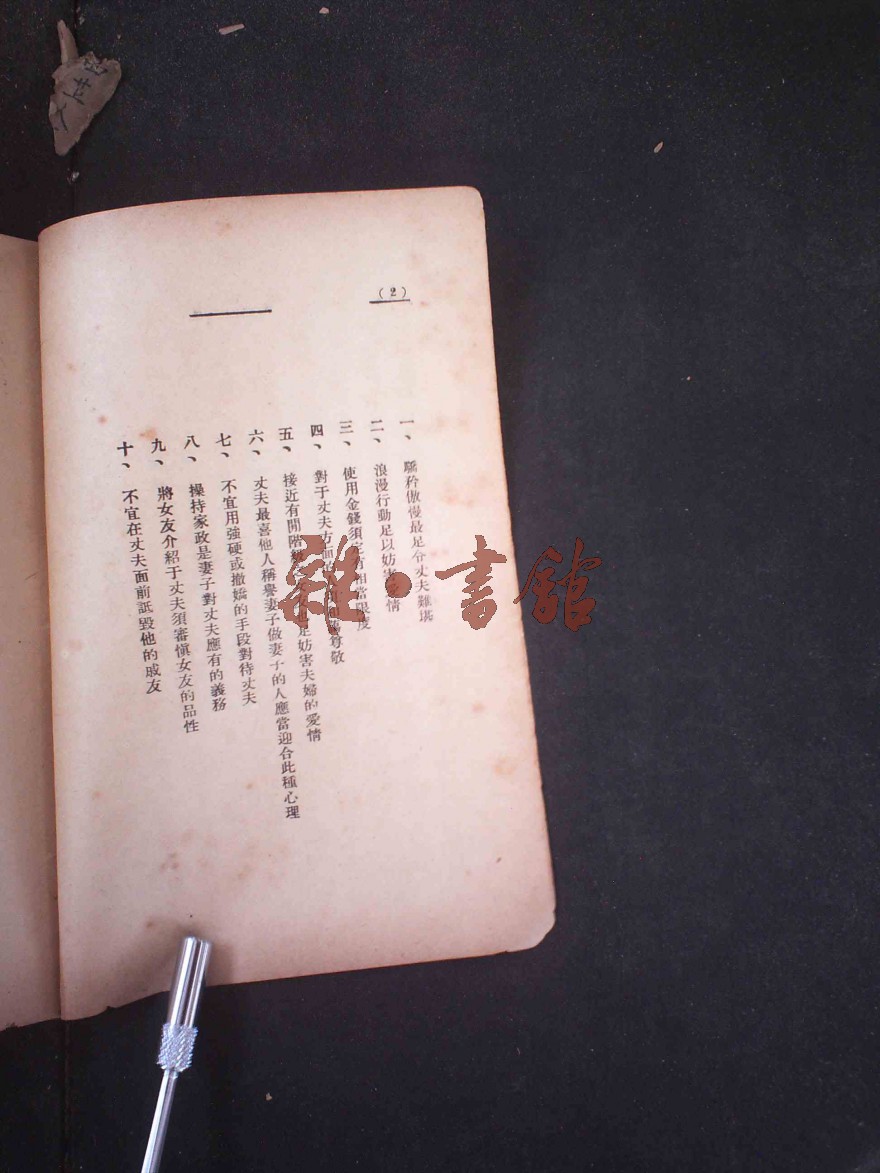 (2)
一、驕矜傲慢最足令丈夫難堪
二、浪漫行動足以妨害愛情
三、使用金錢須定有相當限度
四、對于丈夫方面尊敬
五、接近有閒階級足妨害夫婦的愛情
六、丈夫最喜他人稱譽妻子做妻子的人應當迎合此種心理
七、不宜用強硬或撤嬌的手段對待丈夫
八、操持家政是妻子對丈夫應有的義務
九、將女友介紹于丈夫須審愼女友的品性
十、不宜在丈夫面前詆毀他的戚友
雜·書館